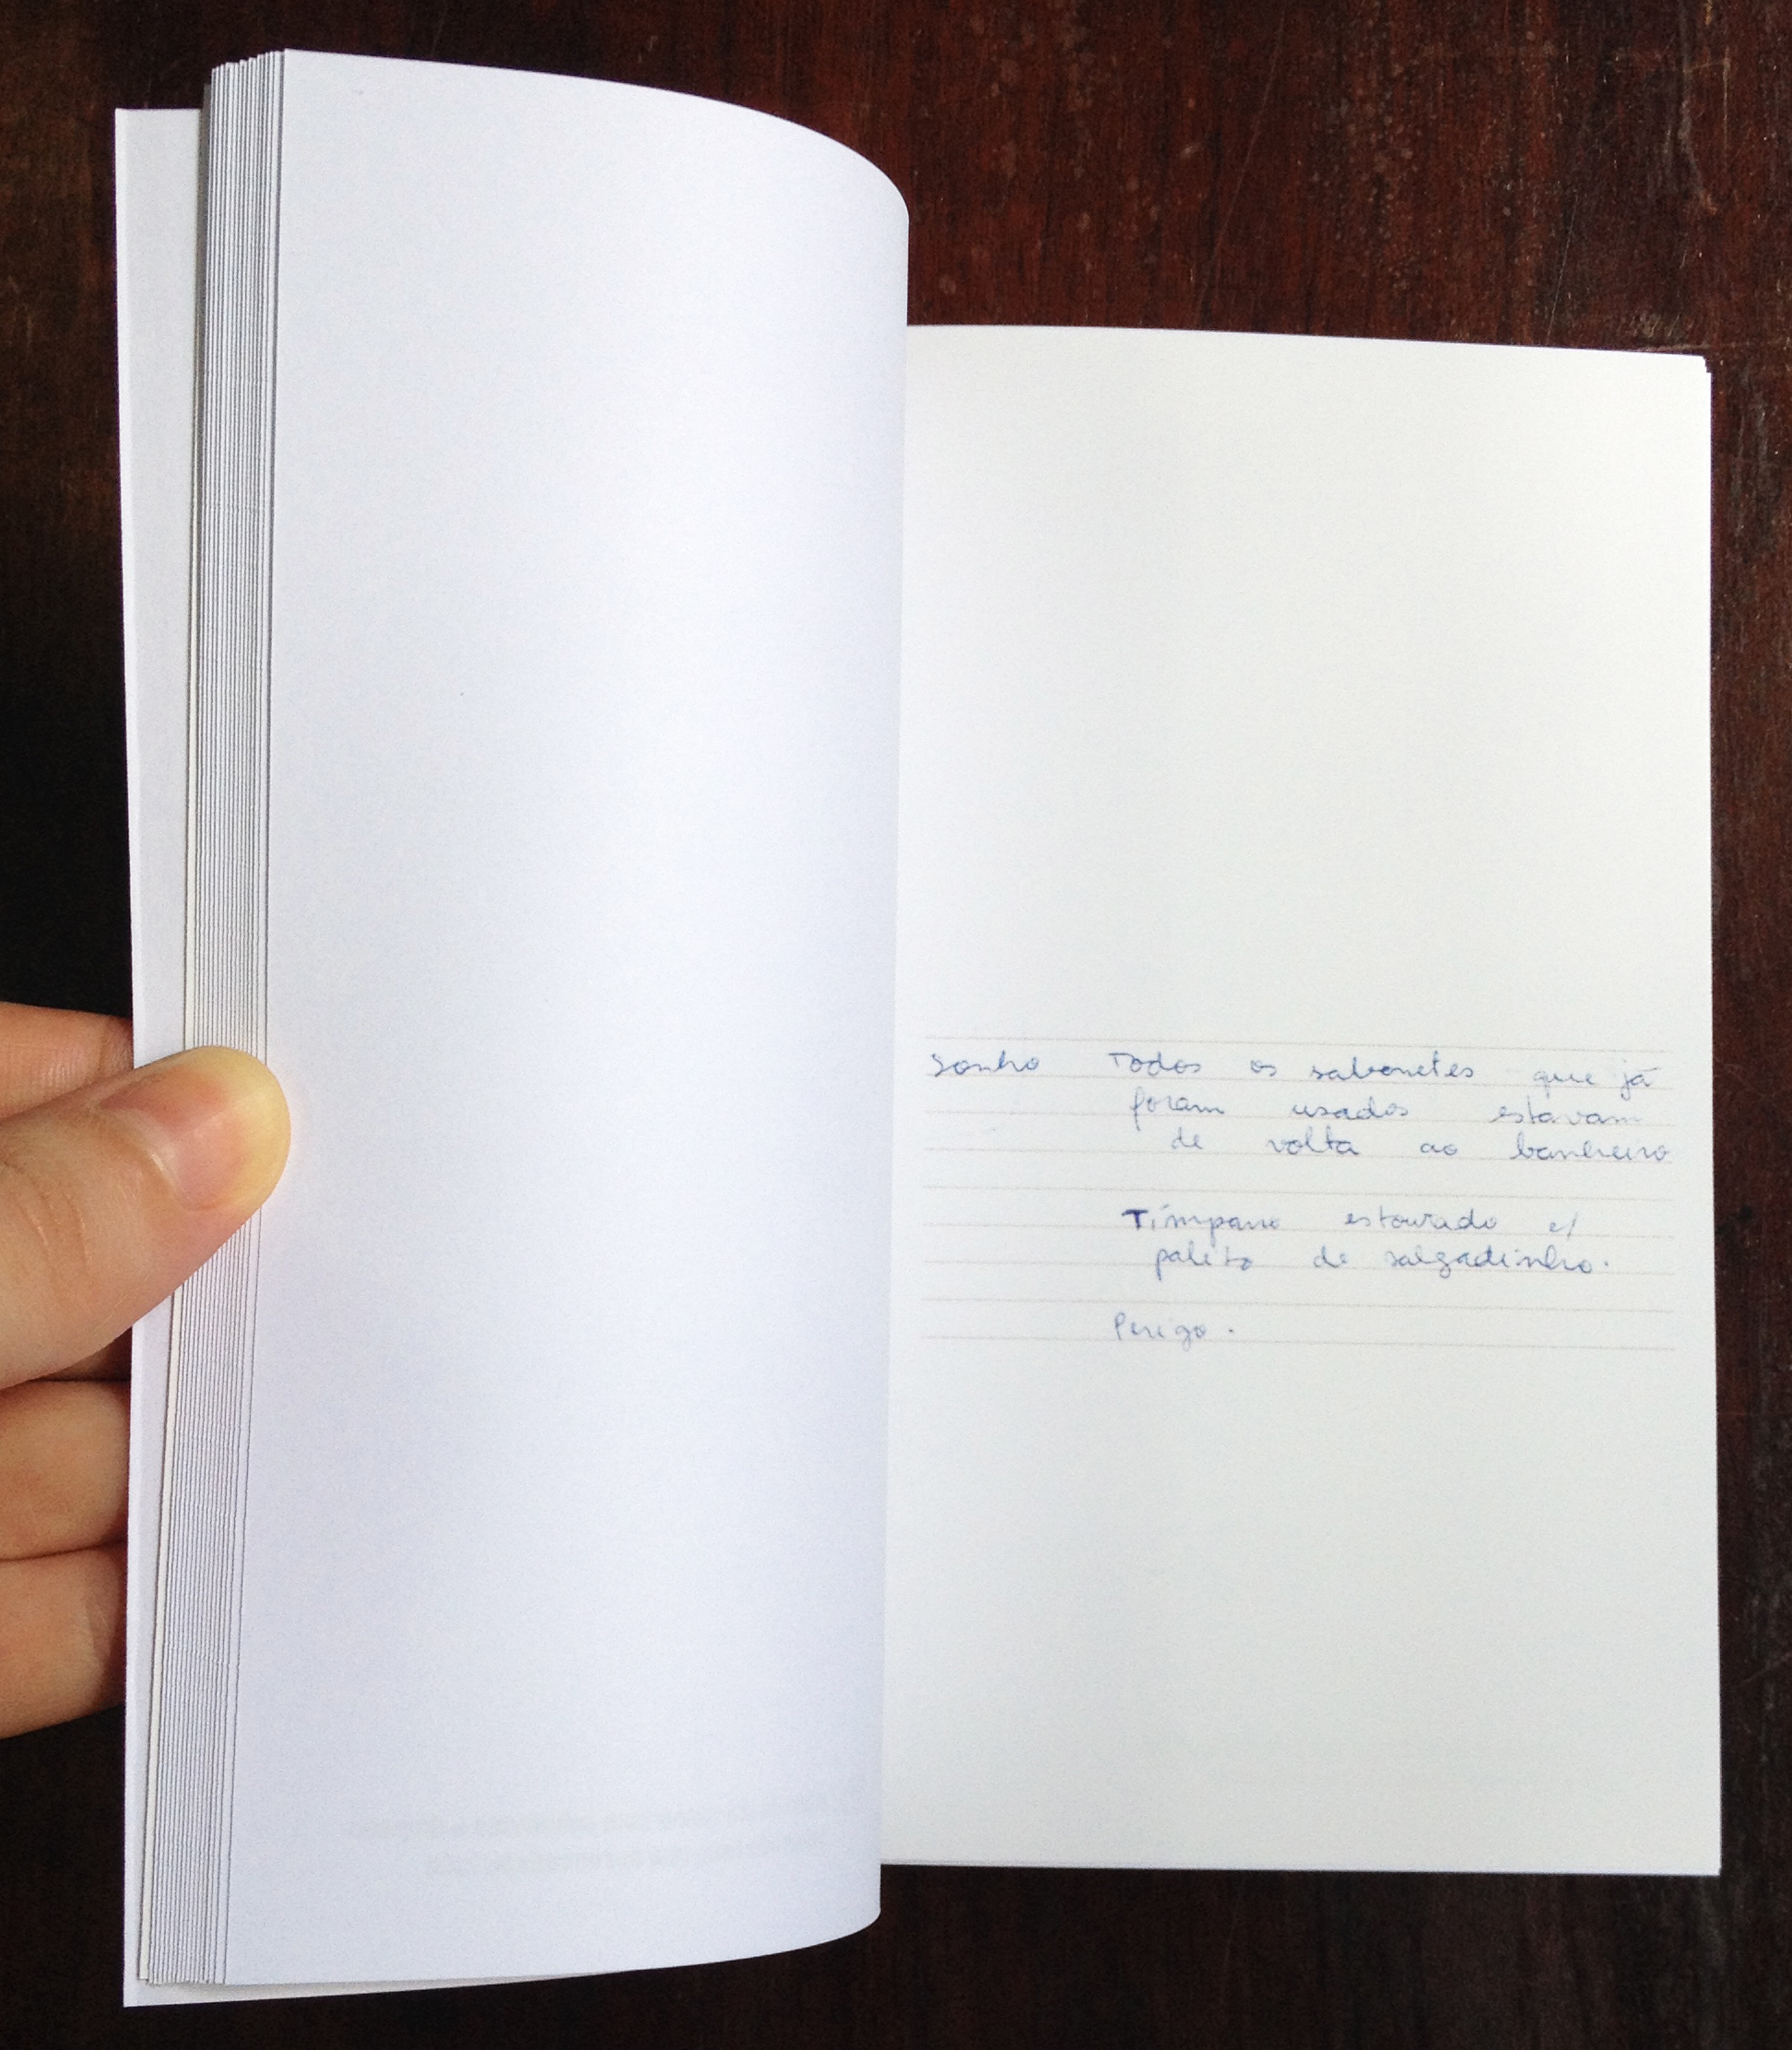 Sonho Todos os sabonetes que já
foram usados estavam
de volta ao banheiro
Tímpano estourado c/
palito de salgadinho.
Perigo.